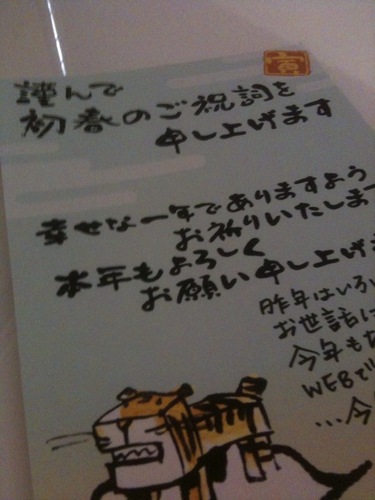 寅
謹んで
初春のご祝詞を
申し上げます
幸せな一年でありますよう
お祈りいたしま
本年もよろしく
お願い申し上げ
昨年はいろ
お世話に
今年も
WEBで
…今